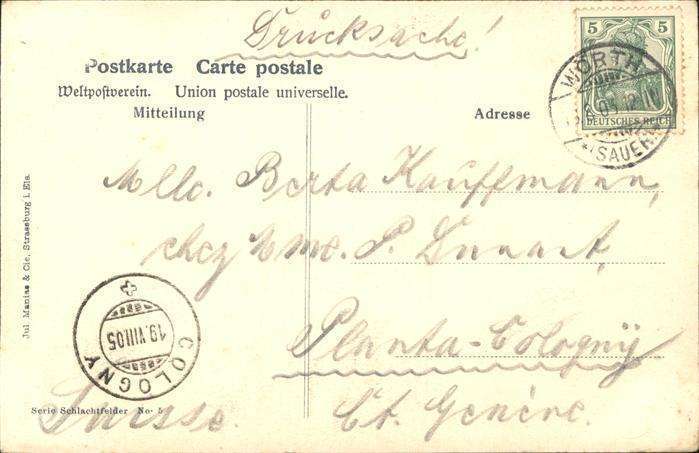 Drucksache!
5 5
WÖRTH
DEUTSCHES REICH
(SAUER)
Postkarte Carte postale
Weltpostverein. Union postale universelle.
Mitteilung Adresse
Mlle. Berta Kauffmann,
chez Mme. P. Dunant,
Planta-Cologny
Ct. Genève.
Suisse.
COLOGNY
19.VIII.05
Serie Schlachtfelder No. 5
Jul. Manias & Cie, Strassburg i. Els.